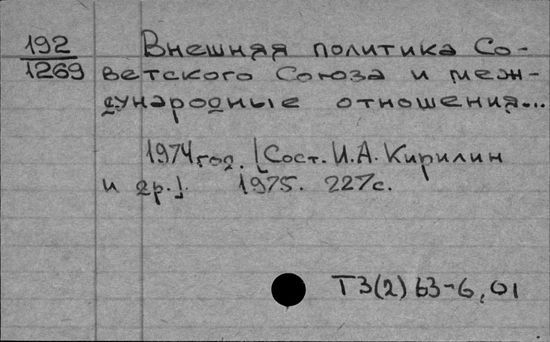 192
1269
Внешняя политика Со-
ветского Союза и меж-
дународные отношения...
1974 год. [Сост. И.А. Кирилин
и др.]. 1975. 227с.
Т3(2)63-6,01